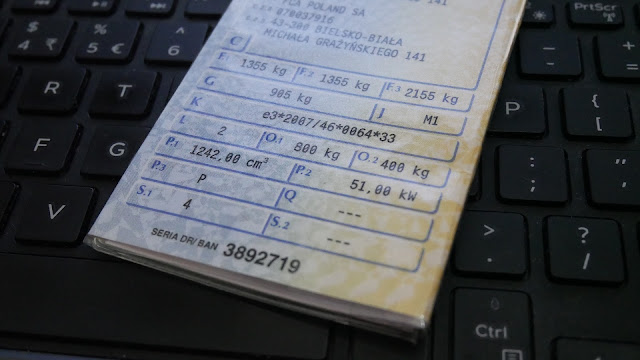 FCA POLAND SA
C.3.2 070037916
C.3.3 43-300 BIELSKO-BIAŁA
MICHAŁA GRAŻYŃSKIEGO 141
C
F.1 1355 kg F.2 1355 kg F.3 2155 kg
G 905 kg J M1
K e3*2007/46*0064*33
L 2 O.1 800 kg O.2 400 kg
P.1 1242,00 cm³ P.2 51,00 kW
P.3 P Q ---
S.1 4 S.2 ---
SERIA DR/BAN 3892719
PrtScr
$ 4 €
% 5 €
^ 6
&
R
T
F
G
V
P
{ [
} ]
: ;
" '
> .
? /
Ctrl